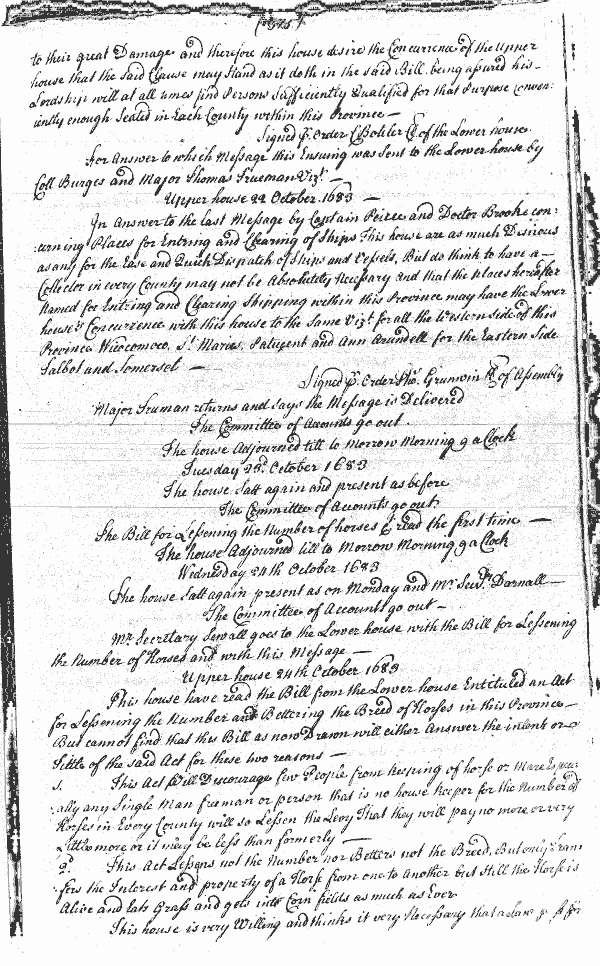 to their great Damage and therefore this house desire the Concurrence of the Upper
house that the Said Clause may Stand as it doth in the said Bill, being assured his
Lordship will at all times find Persons Sufficiently Qualified for that Purpose Conven:
iently enough Seated in Each County within this Province —
Signed p. Order C Boteler Cl. of the Lower house.
For Answer to which Message this Ensuing was Sent to the Lower house by
Coll Burges and Major Thomas Trueman Vizt. —
Upper house 22 October 1683 —
In Answer to the last Message by Captain Peirce and Doctor Brooke con:
:cerning Places for Entring and Clearing of Ships This house are as much Desirous
as any for the Ease and Quick Dispatch of Ships and Vessels, But do think to have a —
Collector in every County may not be Absolutely Necessary And that the places hereafter
Named for Entring and Clearing Shipping within this Province may have the Lower
house's Concurrence with this house to the Same Vizt for all the Western side of this
Province Wiccomoco, St. Maries, Patuxent and Ann Arundell for the Eastern Side
Talbot and Somerset —
Signed p. Order Tho. Grunwin Cl. of Assembly
Major Truman returns and says the Message is Delivered
The Committee of Accounts go out.
The house Adjourned till to Morrow Morning 9 a Clock
Tuesday 23d. October 1683
The house Satt again and present as before
The Committee of Accounts go out
The Bill for Lessening the Number of horses &c read the first time —
The house Adjourned till to Morrow Morning 9 a Clock
Wednesday 24th October 1683
The house Satt again present as on Monday and Mr. Darnall —
The Committee of Accounts go out —
Mr. Secretary Sewall goes to the Lower house with the Bill for Lessening
the Number of Horses and with this Message —
Upper house 24th October 1683
This house have read the Bill from the Lower house Entituled an Act
for Lessening the Number and Bettering the Breed of Horses in this Province —
But cannot find that this Bill as now Drawn will either Answer the intent or
Tittle of the said Act for these two reasons —
1. This Act Will Discourage few People from keeping of horse or Mare Especi
:ally any Single Man freeman or person that is no house keeper for the Number of
Horses in Every County will so Lessen the Levy That they will pay no more or very
Little more or it may be less than formerly —
2d. This Act Lessens not the Number nor Betters not the Breed, But only Trans
fers the Interest and property of a Horse from one to Another but Still the Horse is
Alive and Eats Grass and gets into Corn fields as much as Ever
This house is very Willing and thinks it very Necessary that a Law